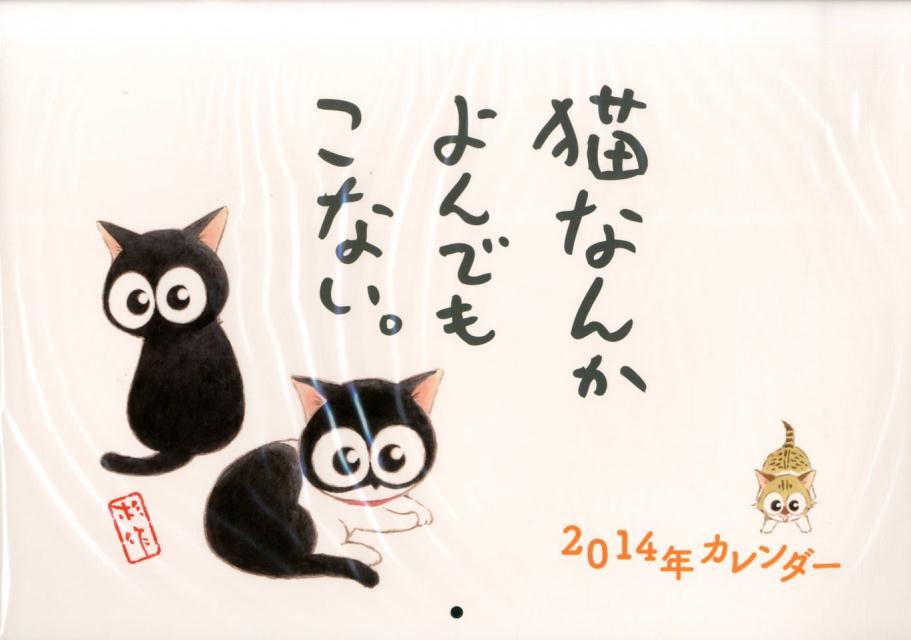 猫なんか
よんでも
こない。
2014年カレンダー